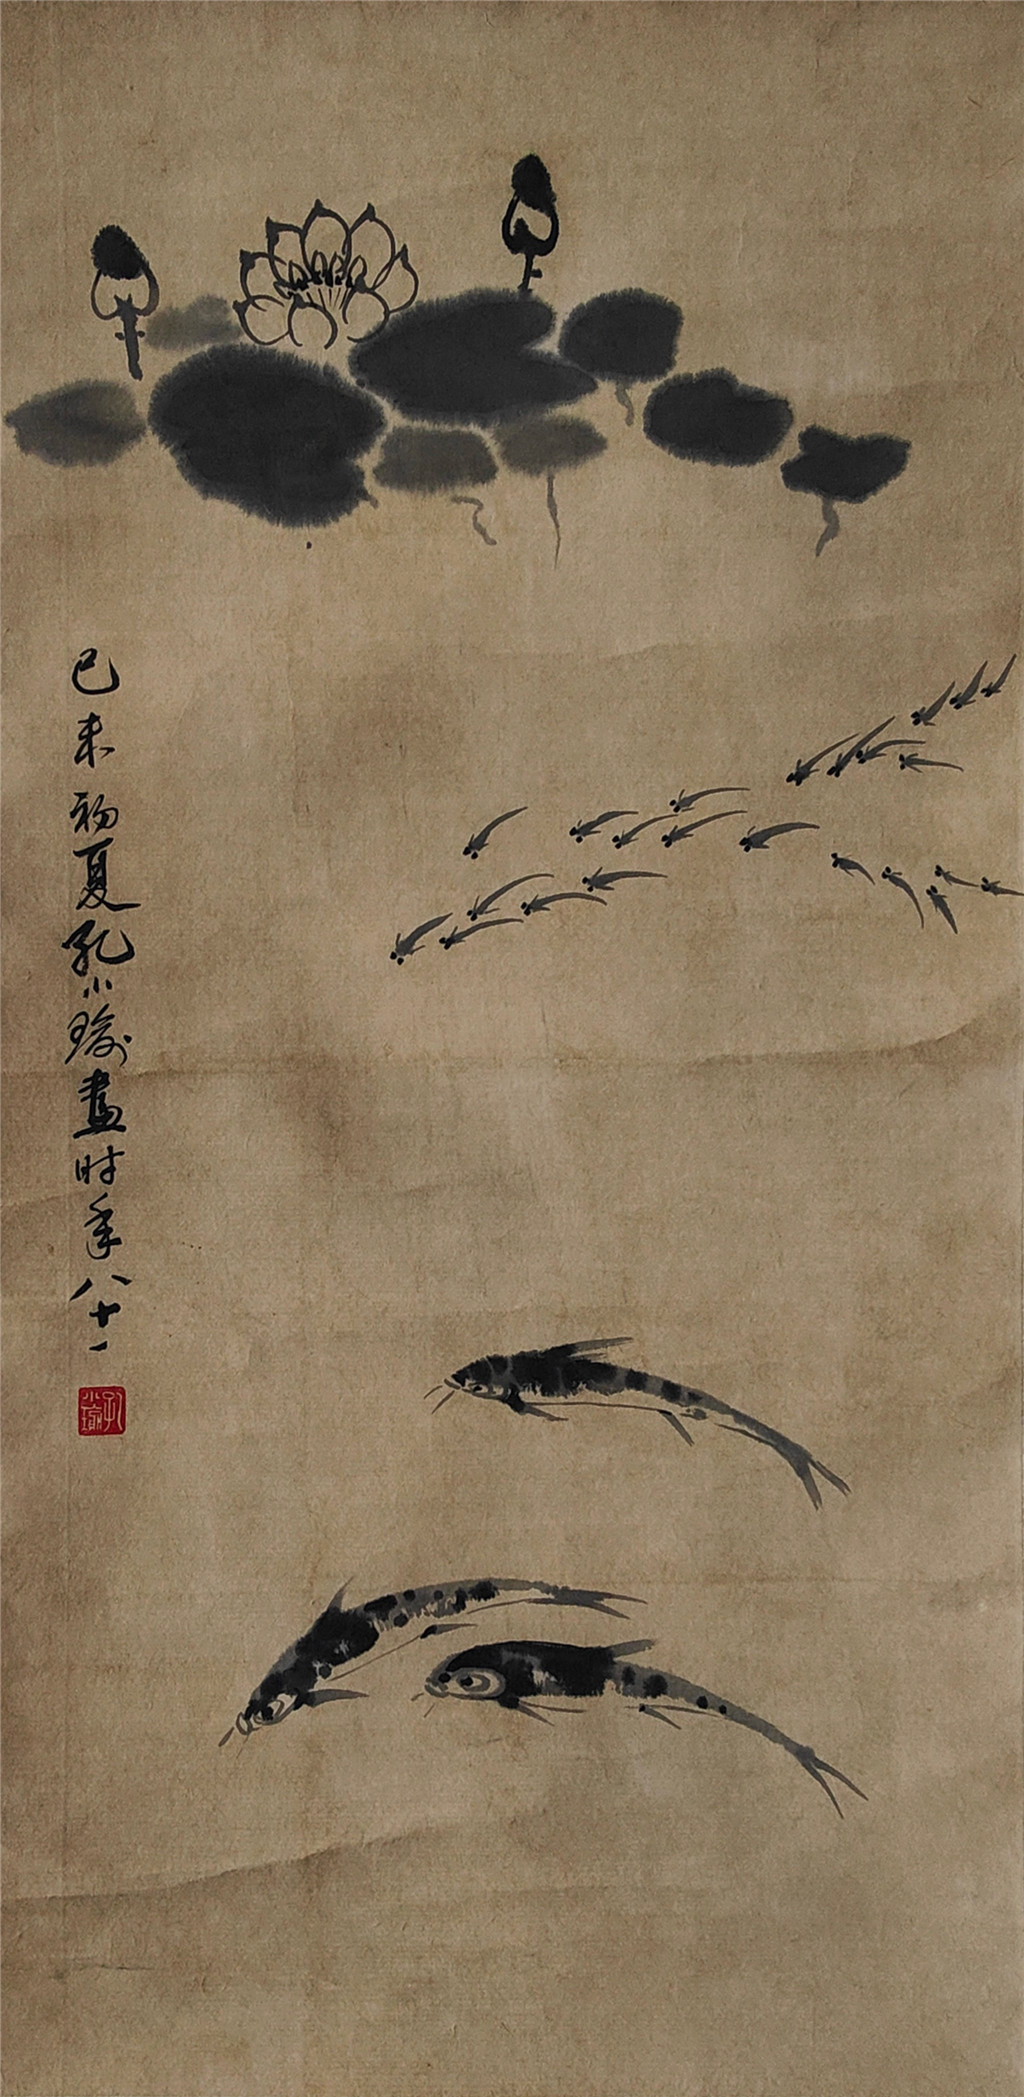 己未初夏孔小瑜畫时年八十一
孔小瑜